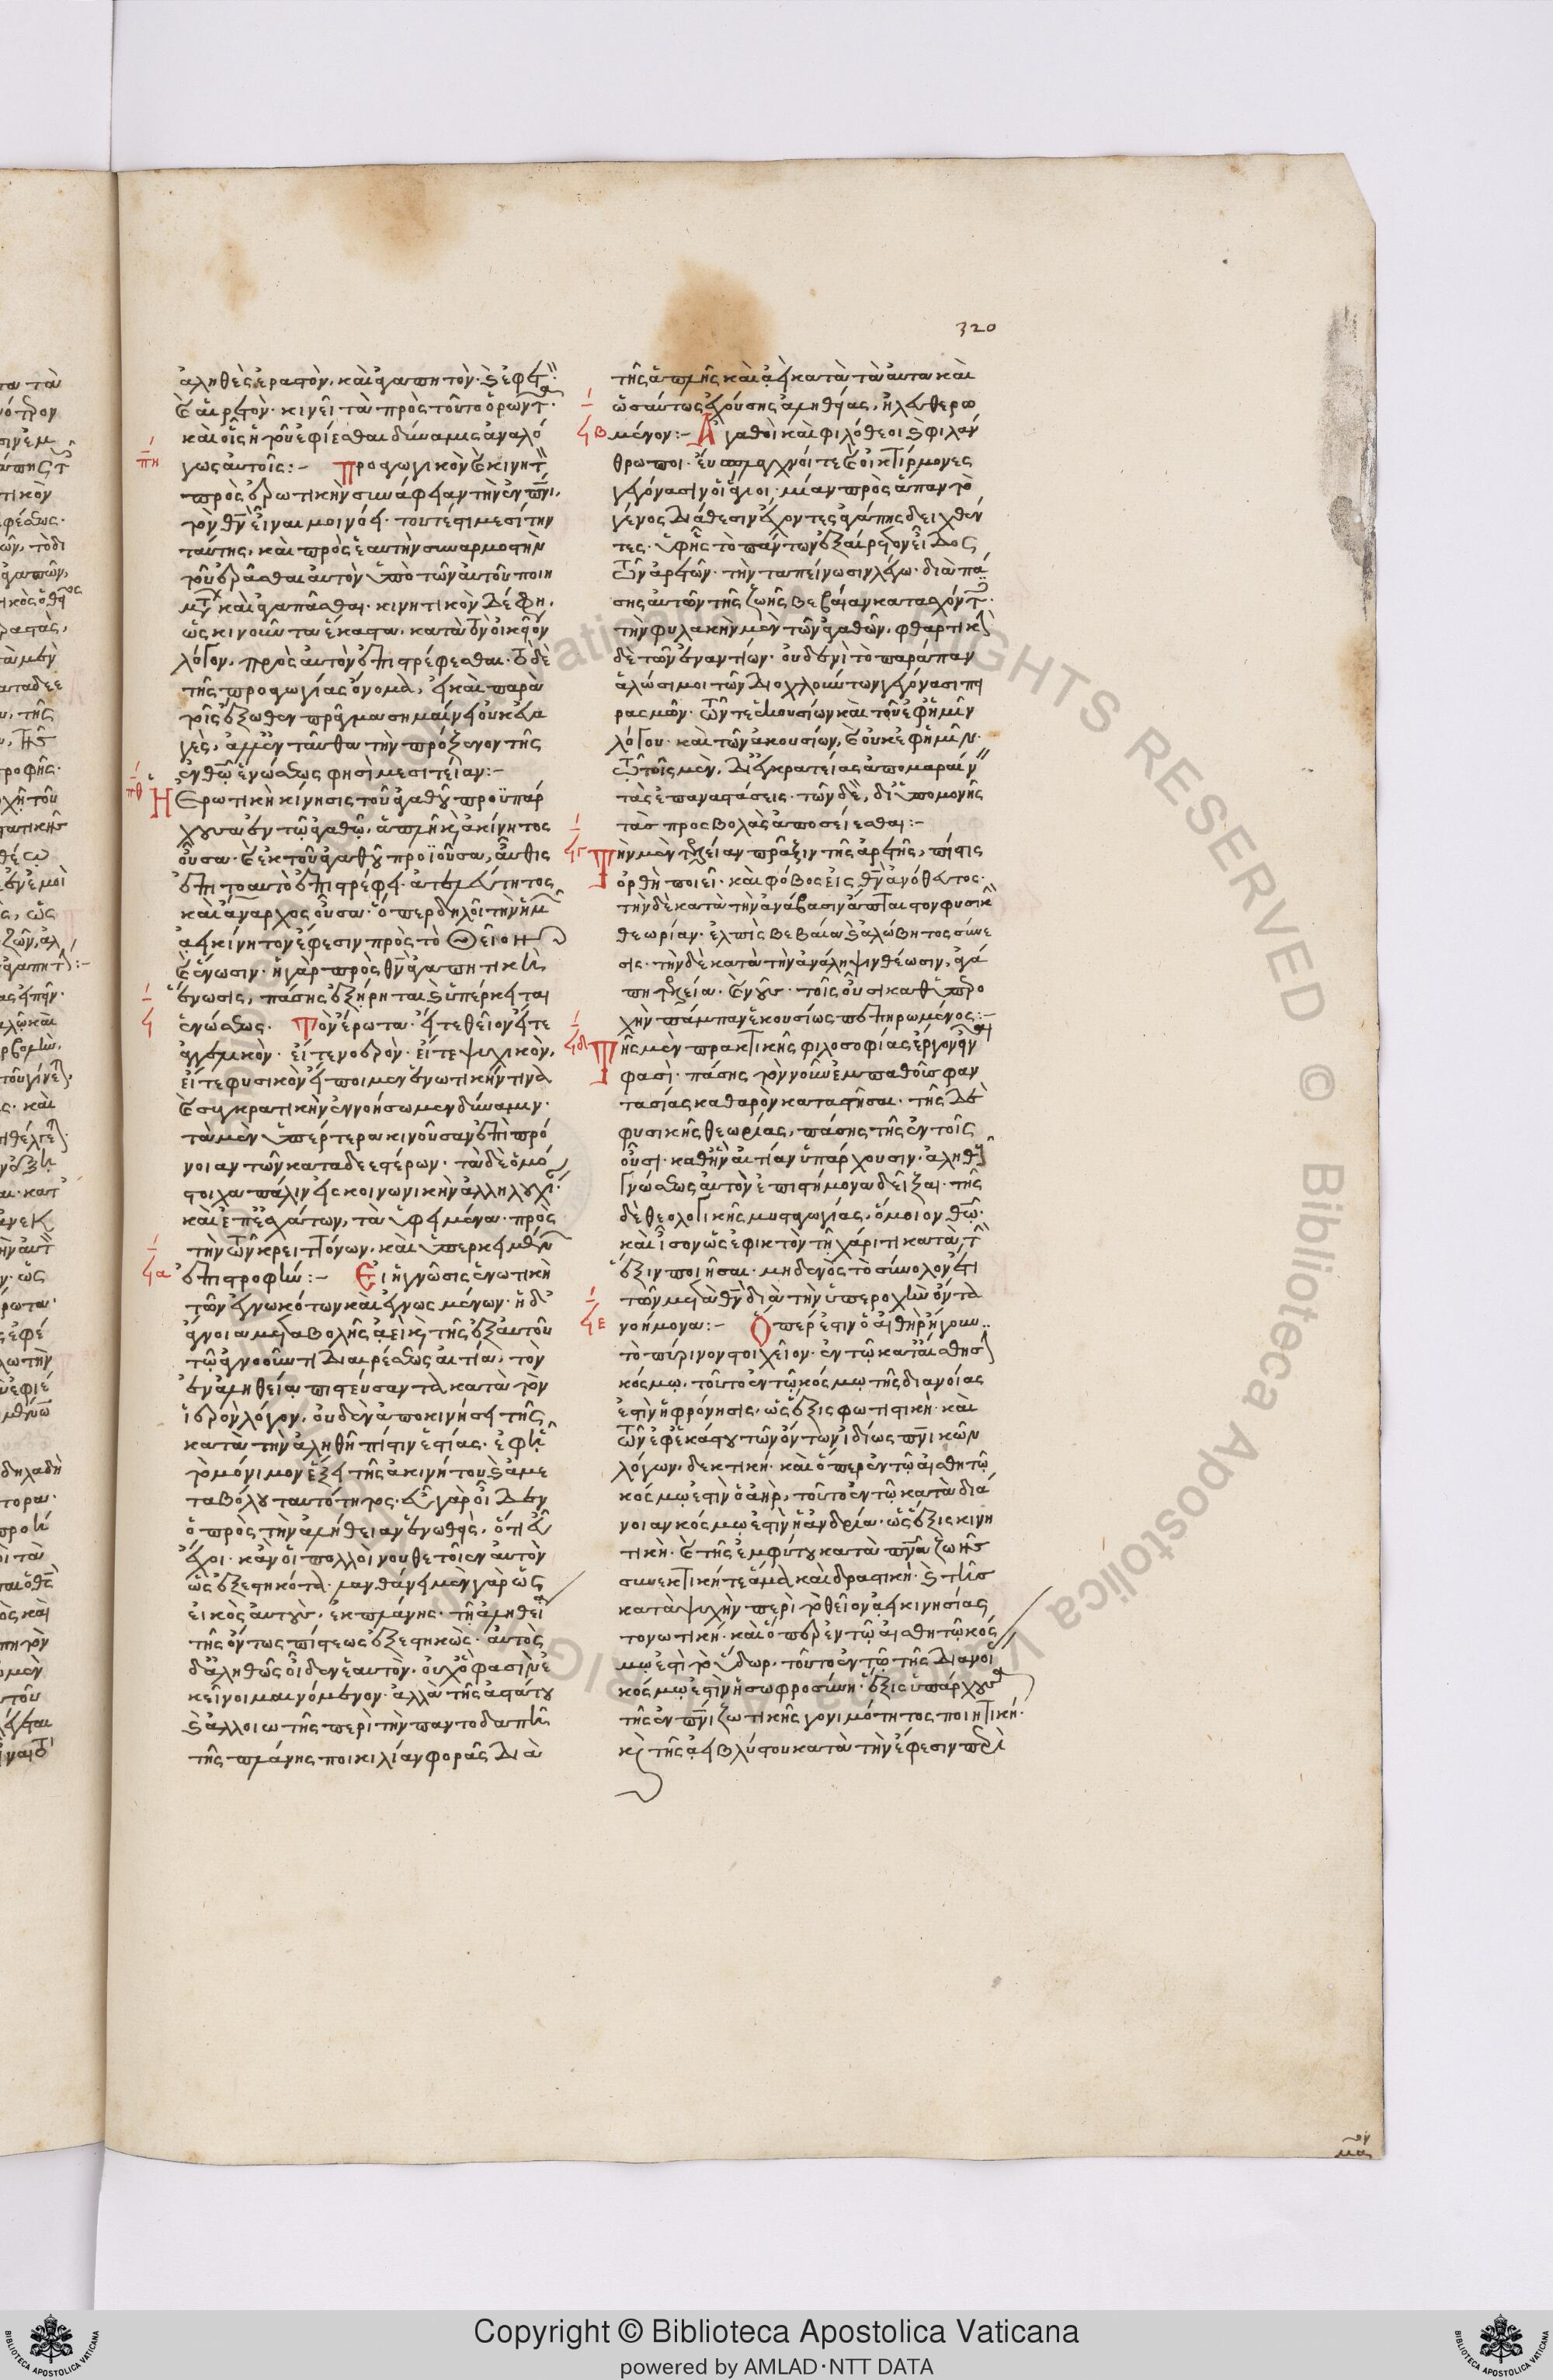 ἀληθὲς ἐραστὸν, καὶ ἀγαπητὸν· καὶ ἐφετὸν
καὶ αἱρετὸν· κινεῖ τὰ πρὸς τοῦτο ὁρῶντα·
καὶ οἷς ἡ τοῦ ἐφίεσθαι δύναμις ἀναλό
πη γως αὐτοῖς:– Προαγωγικὸν καὶ κινητικὸν
πρὸς ἐρωτικὴν συνάφειαν τὴν ἐν πνι,
τὸν θν εἶναι μοι νόει· τουτέστι μεσίτην
ταύτης, καὶ πρὸς ἑαυτὴν συναρμοστὴν
τοῦ ἐρᾶσθαι αὐτὸν ὑπὸ τῶν αὐτοῦ ποιη
μάτων καὶ ἀγαπᾶσθαι· κινητικὸν δέ φη,
ὡς κινοῦντα ἕκαστα, κατὰ τὸν οἰκεῖον
λόγον, πρὸς αὐτὸν ἐπιστρέφεσθαι· τὸ δὲ
τῆς προαγωγίας ὄνομα, εἰ καὶ παρὰ
τοῖς ἔξωθεν πρᾶγμα σημαίνει οὐκ εὐα
γὲς, ἀλλ' ἐνταῦθα τὴν πρόξενον τῆς
ἐν θῶ ἑνώσεως φησὶ μεσιτείαν:–
πθ Ἡ ἐρωτικὴ κίνησις τοῦ ἀγαθοῦ προϋπάρ
χουσα ἐν τῷ ἀγαθῷ, ἁπλῆ καὶ ἀκίνητος
οὖσα· καὶ ἐκ τοῦ ἀγαθοῦ προϊοῦσα, αὖθις
ἐπὶ το αυτὸ ἐπιστρέφει· ἀτελεύτητος
καὶ ἄναρχος οὖσα· ὅπερ δηλοῖ τὴν ἡμῶν
ἀεικίνητον ἔφεσιν πρὸς τὸ θεῖον
καὶ ἕνωσιν· ἡ γὰρ πρὸς θν ἀγαπητικὴ
ἕνωσις, πάσης ἐξήρηται καὶ ὑπέρκειται
ϟ ἑνώσεως. Τὸν ἔρωτα· εἴτε θεῖον εἴτε
ἀγγελικὸν· εἴτε νοερὸν· εἴτε ψυχικὸν,
εἴτε φυσικὸν εἴποιμεν ἑνωτικήν τινα
καὶ συγκρατικὴν ἐννοήσωμεν δύναμιν·
τὰ μὲν ὑπέρτερα κινοῦσαν ἐπὶ πρό
νοιαν τῶν καταδεεστέρων· τὰ δὲ ὁμό
στοιχα πάλιν εἰς κοινωνικὴν ἀλληλουχίαν·
καὶ ἐπ' ἐσχάτων, τὰ ὑφειμένα· πρὸς
τὴν τῶν κρειττόνων, καὶ ὑπερκειμένων
ϟα ἐπιστροφὴν:– Εἰ ἡ γνῶσις ἑνωτικὴ
τῶν ἐγνωκότων καὶ ἐγνωσμένων· ἡ δ'
ἄγνοια μεταβολῆς ἀεὶ καὶ τῆς ἐξ αὐτοῦ
τῷ ἀγνοοῦντι διαιρέσεως αἰτία, τὸν
ἐν ἀληθείᾳ πιστεύσαντα κατὰ τὸν
ἱερὸν λόγον, οὐδὲν ἀποκινήσει τῆς
κατὰ τὴν ἀληθῆ πίστιν ἑστίας· ἐφ' ἧς
τὸ μόνιμον ἕξει τῆς ἀκινήτου καὶ ἀμε
ταβόλου ταυτότητος· εὖ γὰρ οἶδεν
ὁ πρὸς τὴν ἀλήθειαν ἑνωθεὶς, ὅτι εὖ
ἔχει· κἂν οἱ πολλοὶ νουθετοῖεν αὐτὸν
ὡς ἐξεστηκότα· λανθάνει μὲν γὰρ ὡς
εἰκὸς αὐτοὺς, ἐκ πλάνης· τῇ ἀληθείᾳ
τῆς ὄντως πίστεως ἐξεστηκὼς· αὐτὸς
δ' ἀληθῶς οἶδεν ἑαυτὸν, οὐχ ὅ φασὶν ἐ
κεῖνοι μαινόμενον· ἀλλὰ τῆς ἀστάτου
καὶ ἀλλοιωτῆς περὶ τὴν παντοδαπῆ
τῆς πλάνης ποικιλίαν φορᾶς διὰ
320
τῆς ἁπλῆς καὶ ἀεὶ κατὰ τὰ αὐτὰ καὶ
ὡσαύτως ἐχούσης ἀληθείας, ἠλευθερω
ϟβ μένον:– Ἀγαθοὶ καὶ φιλόθεοι καὶ φιλάν
θρωποι· εὔσπλαγχνοί τε καὶ οἰκτίρμονες
γεγόνασιν οἱ ἅγιοι· μίαν πρὸς ἅπαν τὸ
γένος διάθεσιν ἔχοντες ἀγάπης δειχθέν
τες· ὑφ' ἧς τὸ πάντων ἐξαίρετον εἶδος
τῶν ἀρετῶν· τὴν ταπείνωσιν λέγω· διὰ πά
σης αὐτῶν τῆς ζωῆς βεβαίαν κατασχόντες·
τὴν φυλακὴν μὲν τῶν ἀγαθῶν, φθαρτικὴν
δὲ τῶν ἐναντίων· οὐδενὶ τὸ παράπαν
ἁλώσιμοι τῶν διοχλούντων γεγόνασι πει
ρασμῶν· τῶν τε ἑκουσίων καὶ τοῦ ἐφ' ἡμῖν
λόγου· καὶ τῶν ἀκουσίων, καὶ οὐκ ἐφ' ἡμῖν·
τῷ τοῖς μὲν, δι' ἐγκρατείας ἀπομαραίνειν
τὰς ἐπαναστάσεις· τῶν δὲ, δι' ὑπομονῆς
τὰς προσβολὰς ἀποσείεσθαι:–
ϟγ Τὴν μὲν τελείαν πρᾶξιν τῆς ἀρετῆς, πίστις
ὀρθὴ ποιεῖ· καὶ φόβος εἰς θν ἀνόθευτος·
τὴν δὲ κατὰ τὴν ἀνάβασιν ἄπταιστον φυσικὴν
θεωρίαν· ἐλπὶς βεβαία καὶ ἀλώβητος σύνε
σις· τὴν δὲ κατὰ τὴν ἀνάληψιν θέωσιν, ἀγά
πη τελεία· καὶ νοῦς· τοῖς οὖσι καθ' ὑπερο
χὴν πάμπαν ἑκουσίως πεπηρωμένος:–
ϟδ Τῆς μὲν πρακτικῆς φιλοσοφίας ἔργον εἶναι
φασὶ· πάσης τὸν νοῦν ἐμπαθοῦς φαν
τασίας καθαρὸν καταστῆσαι· τῆς δὲ
φυσικῆς θεωρίας, πάσης τῆς ἐν τοῖς
οὖσι· καθ' ἣν αἰτίαν ὑπάρχουσιν· ἀληθοῦς
γνώσεως αὐτὸν ἐπιστήμονα δεῖξαι· τῆς
δὲ θεολογικῆς μυσταγωγίας, ὅμοιον θῶ·
καὶ ἴσον ὡς ἐφικτὸν τῇ χάριτι κατὰ τὴν
ἕξιν ποιῆσαι· μηδενὸς τὸ σύνολον ἔτι
τῶν μετὰ θν διὰ τὴν ὑπεροχὴν ὄντα
ϟε νοήμονα:– Ὅπερ ἐστιν ὁ αἰθὴρ ἤγουν
τὸ πύρινον στοιχεῖον· ἐν τῷ κατ' αἴσθησιν
κόσμῳ, τοῦτο ἐν τῷ κόσμῳ τῆς διανοίας
ἐστὶν ἡ φρόνησις, ὡς ἕξις φωτιστικὴ· καὶ
τῶν ἐφ' ἑκάστου τῶν ὄντων ἰδίως πνικῶν
λόγων, δεκτική· καὶ ὅπερ ἐν τῷ αἰσθητῷ
κόσμῳ ἐστὶν ὁ ἀὴρ, τοῦτο ἐν τῷ κατὰ διά
νοιαν κόσμῳ ἐστὶν ἡ ἀνδρία· ὡς ἕξις κινη
τικὴ· καὶ τῆς ἐμφύτου κατὰ πνα ζωῆς
συνεκτική τε ἅμα καὶ δραστική· καὶ τῆς
κατὰ ψυχὴν περὶ τὸ θεῖον ἀεικινησίας
τονωτική· καὶ ὅπερ ἐν τῷ αἰσθητῷ κόσ
μῳ ἐστὶ τὸ ὕδωρ, τοῦτο ἐν τῷ τῆς διανοίας
κόσμῳ ἐστὶν ἡ σωφροσύνη· ἕξις ὑπάρχουσα
τῆς ἐν πνι ζωτικῆς γονιμότητος ποιητική·
καὶ τῆς ἀειβλύστου κατὰ τὴν ἔφεσιν περὶ
Copyright © Biblioteca Apostolica Vaticana
powered by AMLAD·NTT DATA